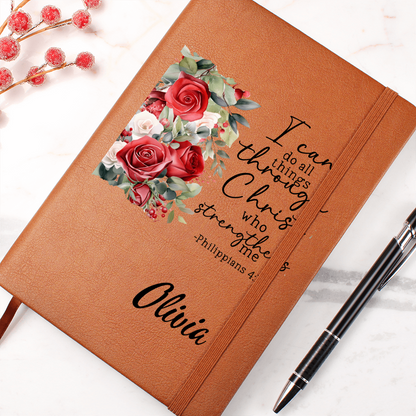 I can
do all
things
through
Chris
who
strengthe s
me
-Philippians 4:
Olivia